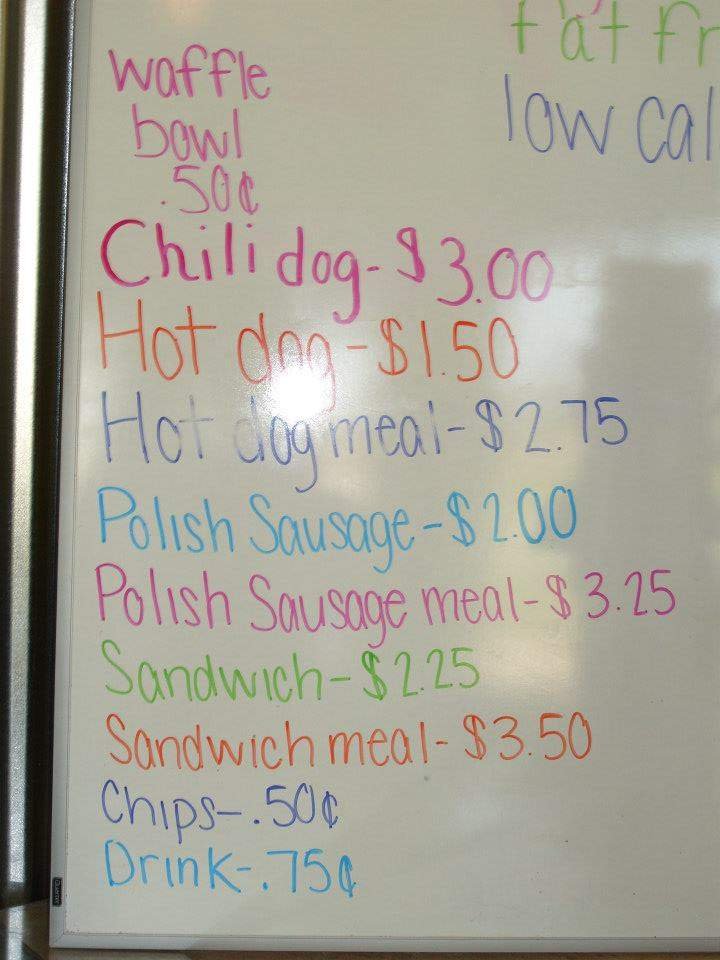 waffle
bowl
.50¢
fat fr
low cal
Chili dog-$3.00
Hot dog-$1.50
Hot dog meal-$2.75
Polish Sausage-$2.00
Polish Sausage meal-$3.25
Sandwich-$2.25
Sandwich meal-$3.50
Chips-.50¢
Drink-.75¢